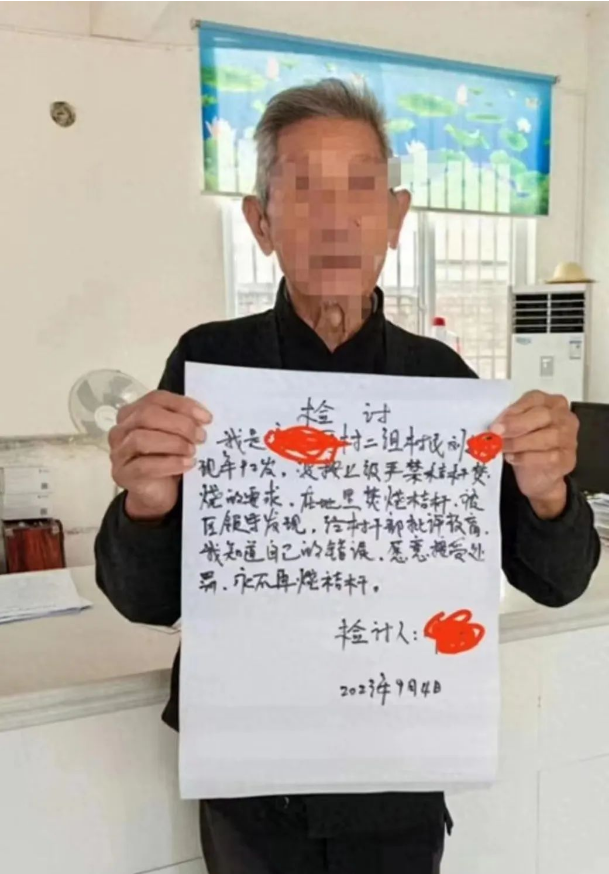 检 讨
我是 村二组村民刘
现年92岁，没按上级严禁秸秆焚
烧的要求，在地里焚烧秸秆，被
区领导发现，经村干部批评教育，
我知道自己的错误，愿意接受处
罚，永不再烧秸秆。
检讨人：
2023年9月4日